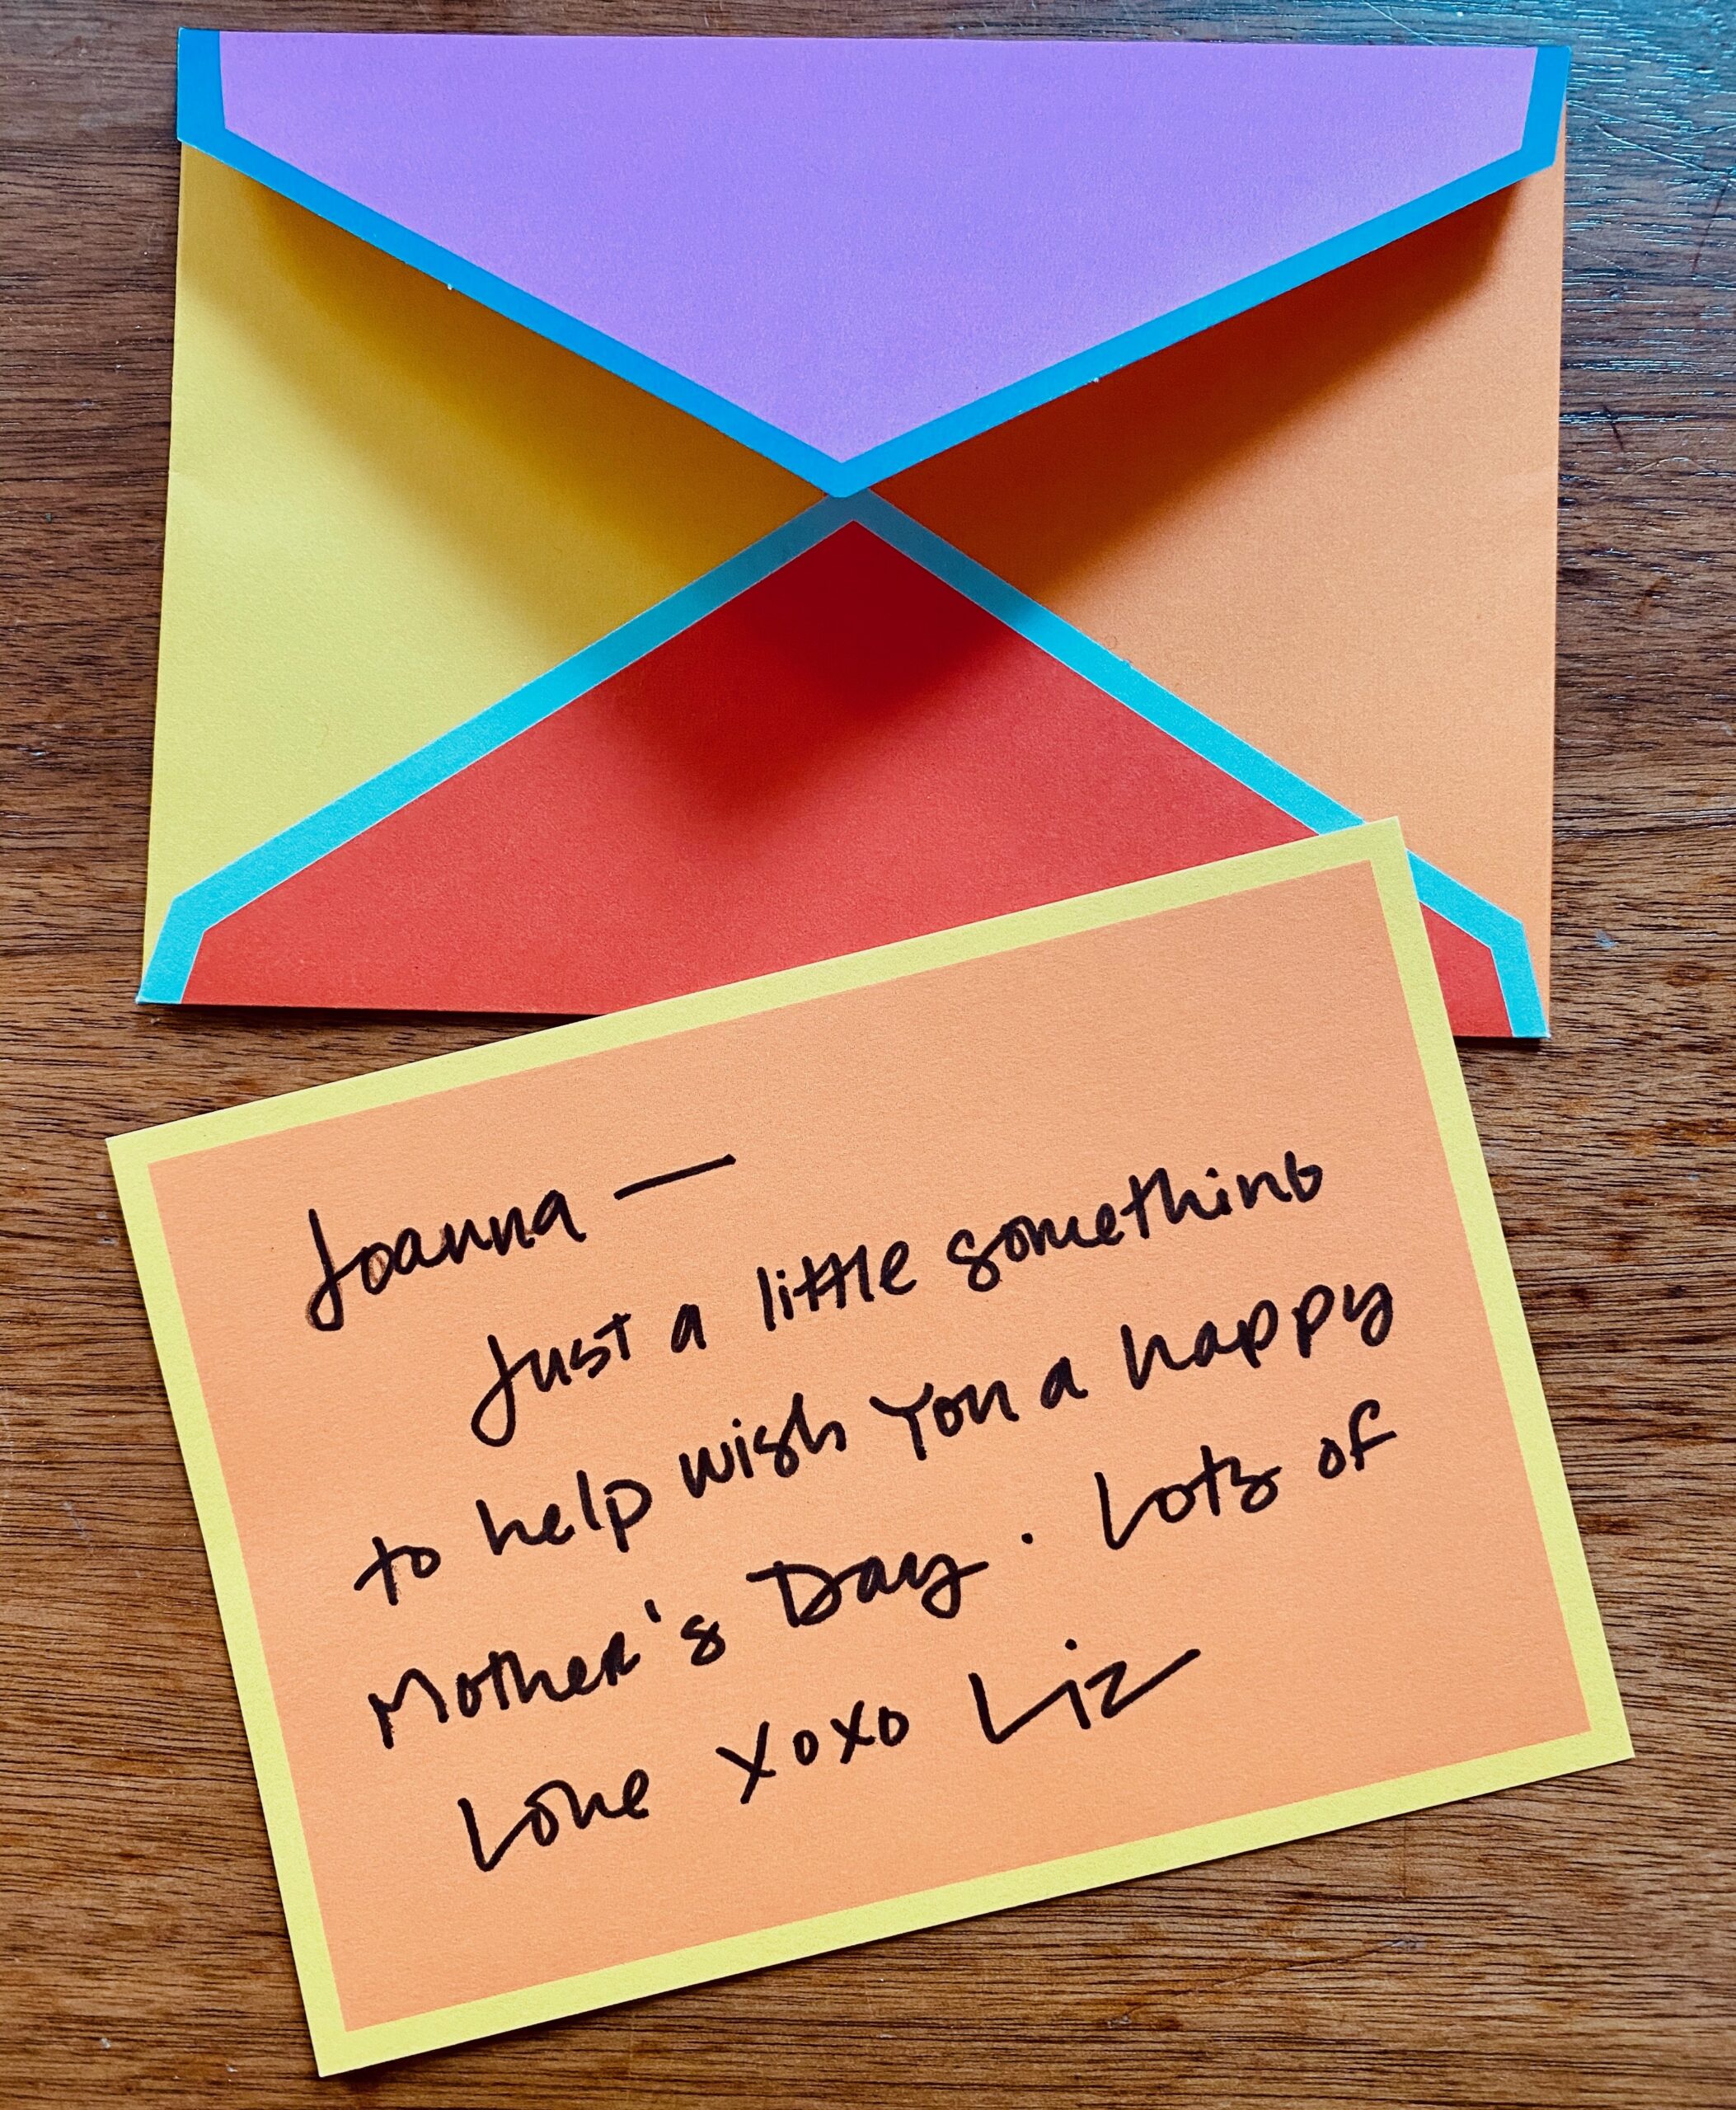 Joanna —
Just a little something
to help wish you a happy
Mother's Day. Lots of
Love xoxo Liz